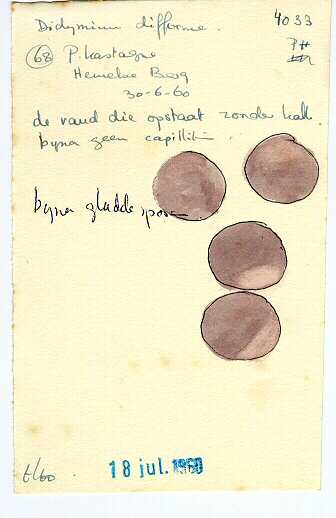 Didymium difforme. 4033
68 P. Kastagne PH
Hemelse Berg
30-6-60
de rand die opstaat zonder kalk.
byna geen capillitium.
byna gladde sporen
t/60 18 jul. 1960